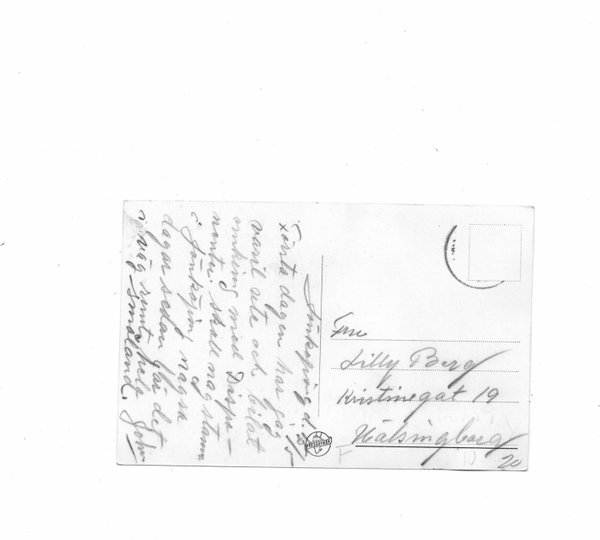 Jönköping d. 2/5
Första dagen har jag
varit ute och bilat
omkring med Dispo-
nenten skall nog stanna
i Jönköping några
dagar sedan går det
i väg runt hela
Småland. John
Fru
Lilly Berg
Kristinegat 19
Hälsingborg
20